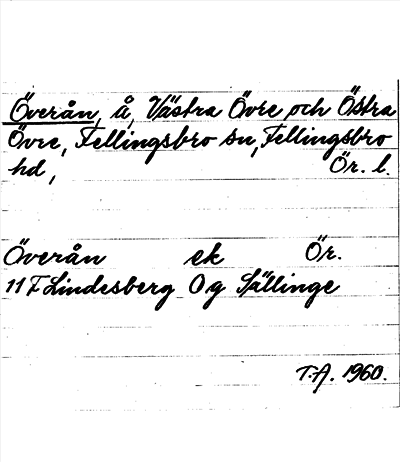 Överån, å, Västra Övre och Östra
Övre, Fellingsbro sn, Fellingsbro
hd, Ör. l.
Överån ek Ör.
11 F Lindesberg 0 g Sällinge
T.A. 1960.